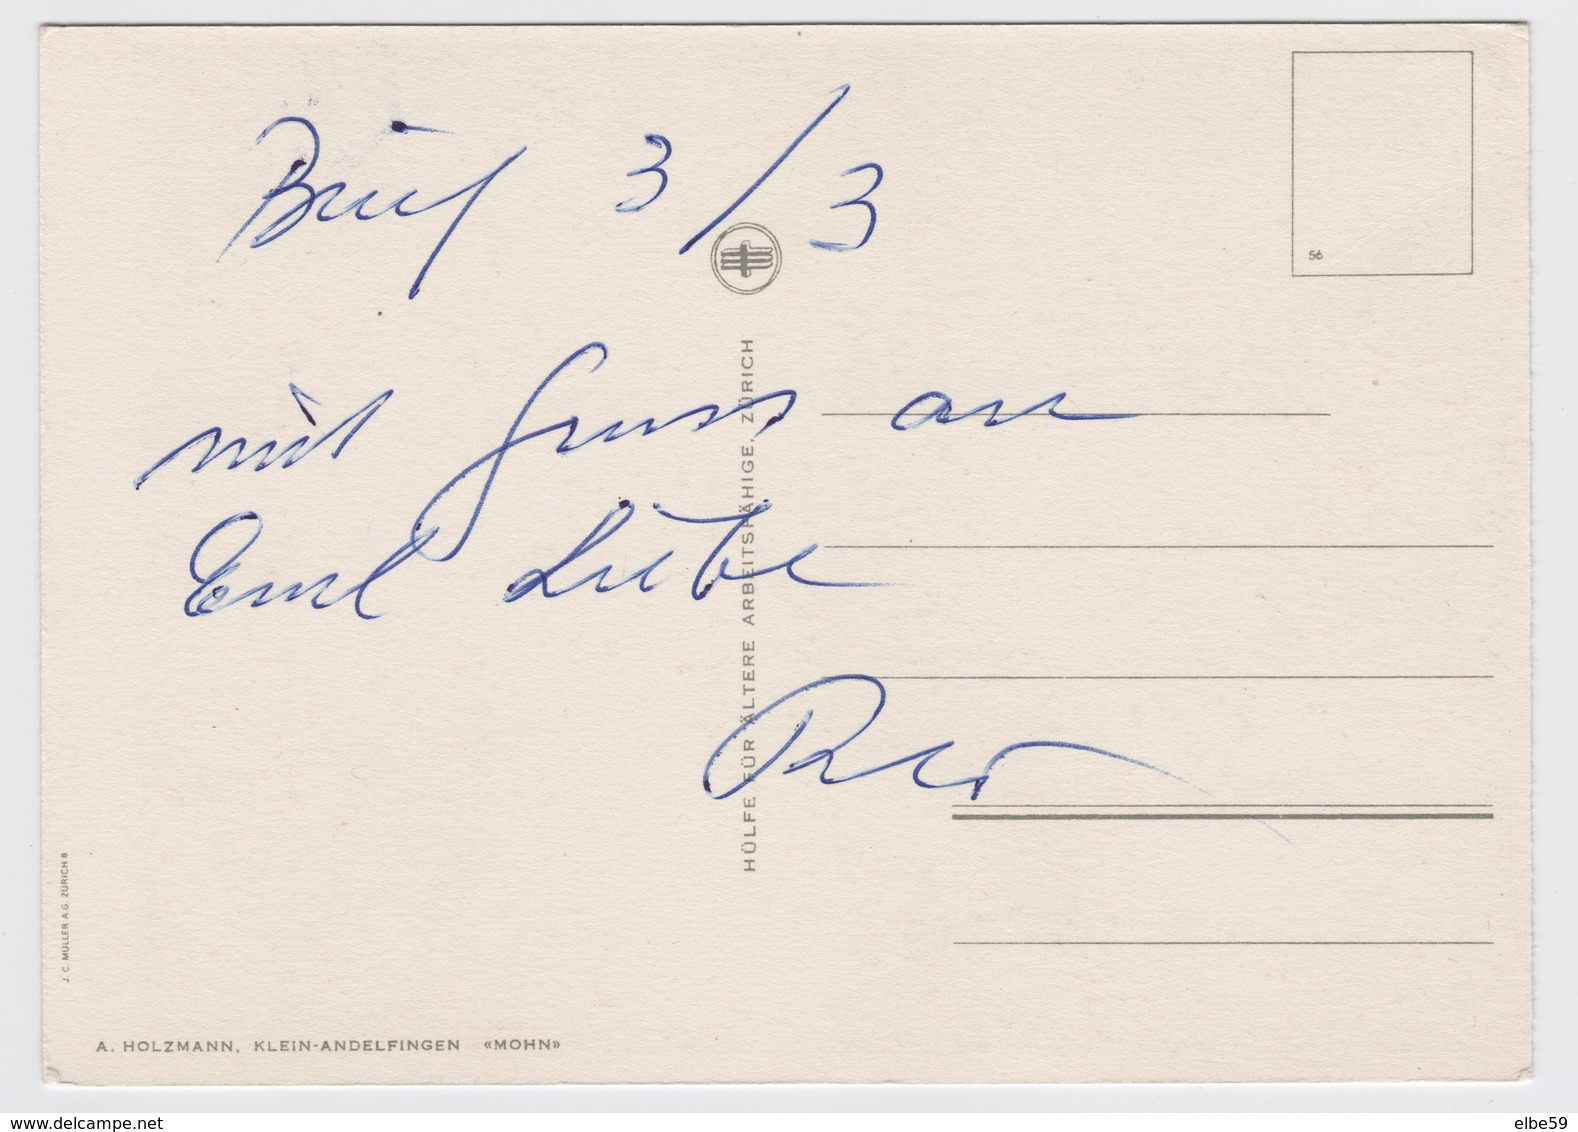 Brief 3/3
mit Gruss an
Emil Liebe
56
HÜLFE FÜR ÄLTERE ARBEITSFÄHIGE, ZÜRICH
J. C. MÜLLER AG. ZÜRICH 8
A. HOLZMANN, KLEIN-ANDELFINGEN «MOHN»
www.delcampe.net
elbe59